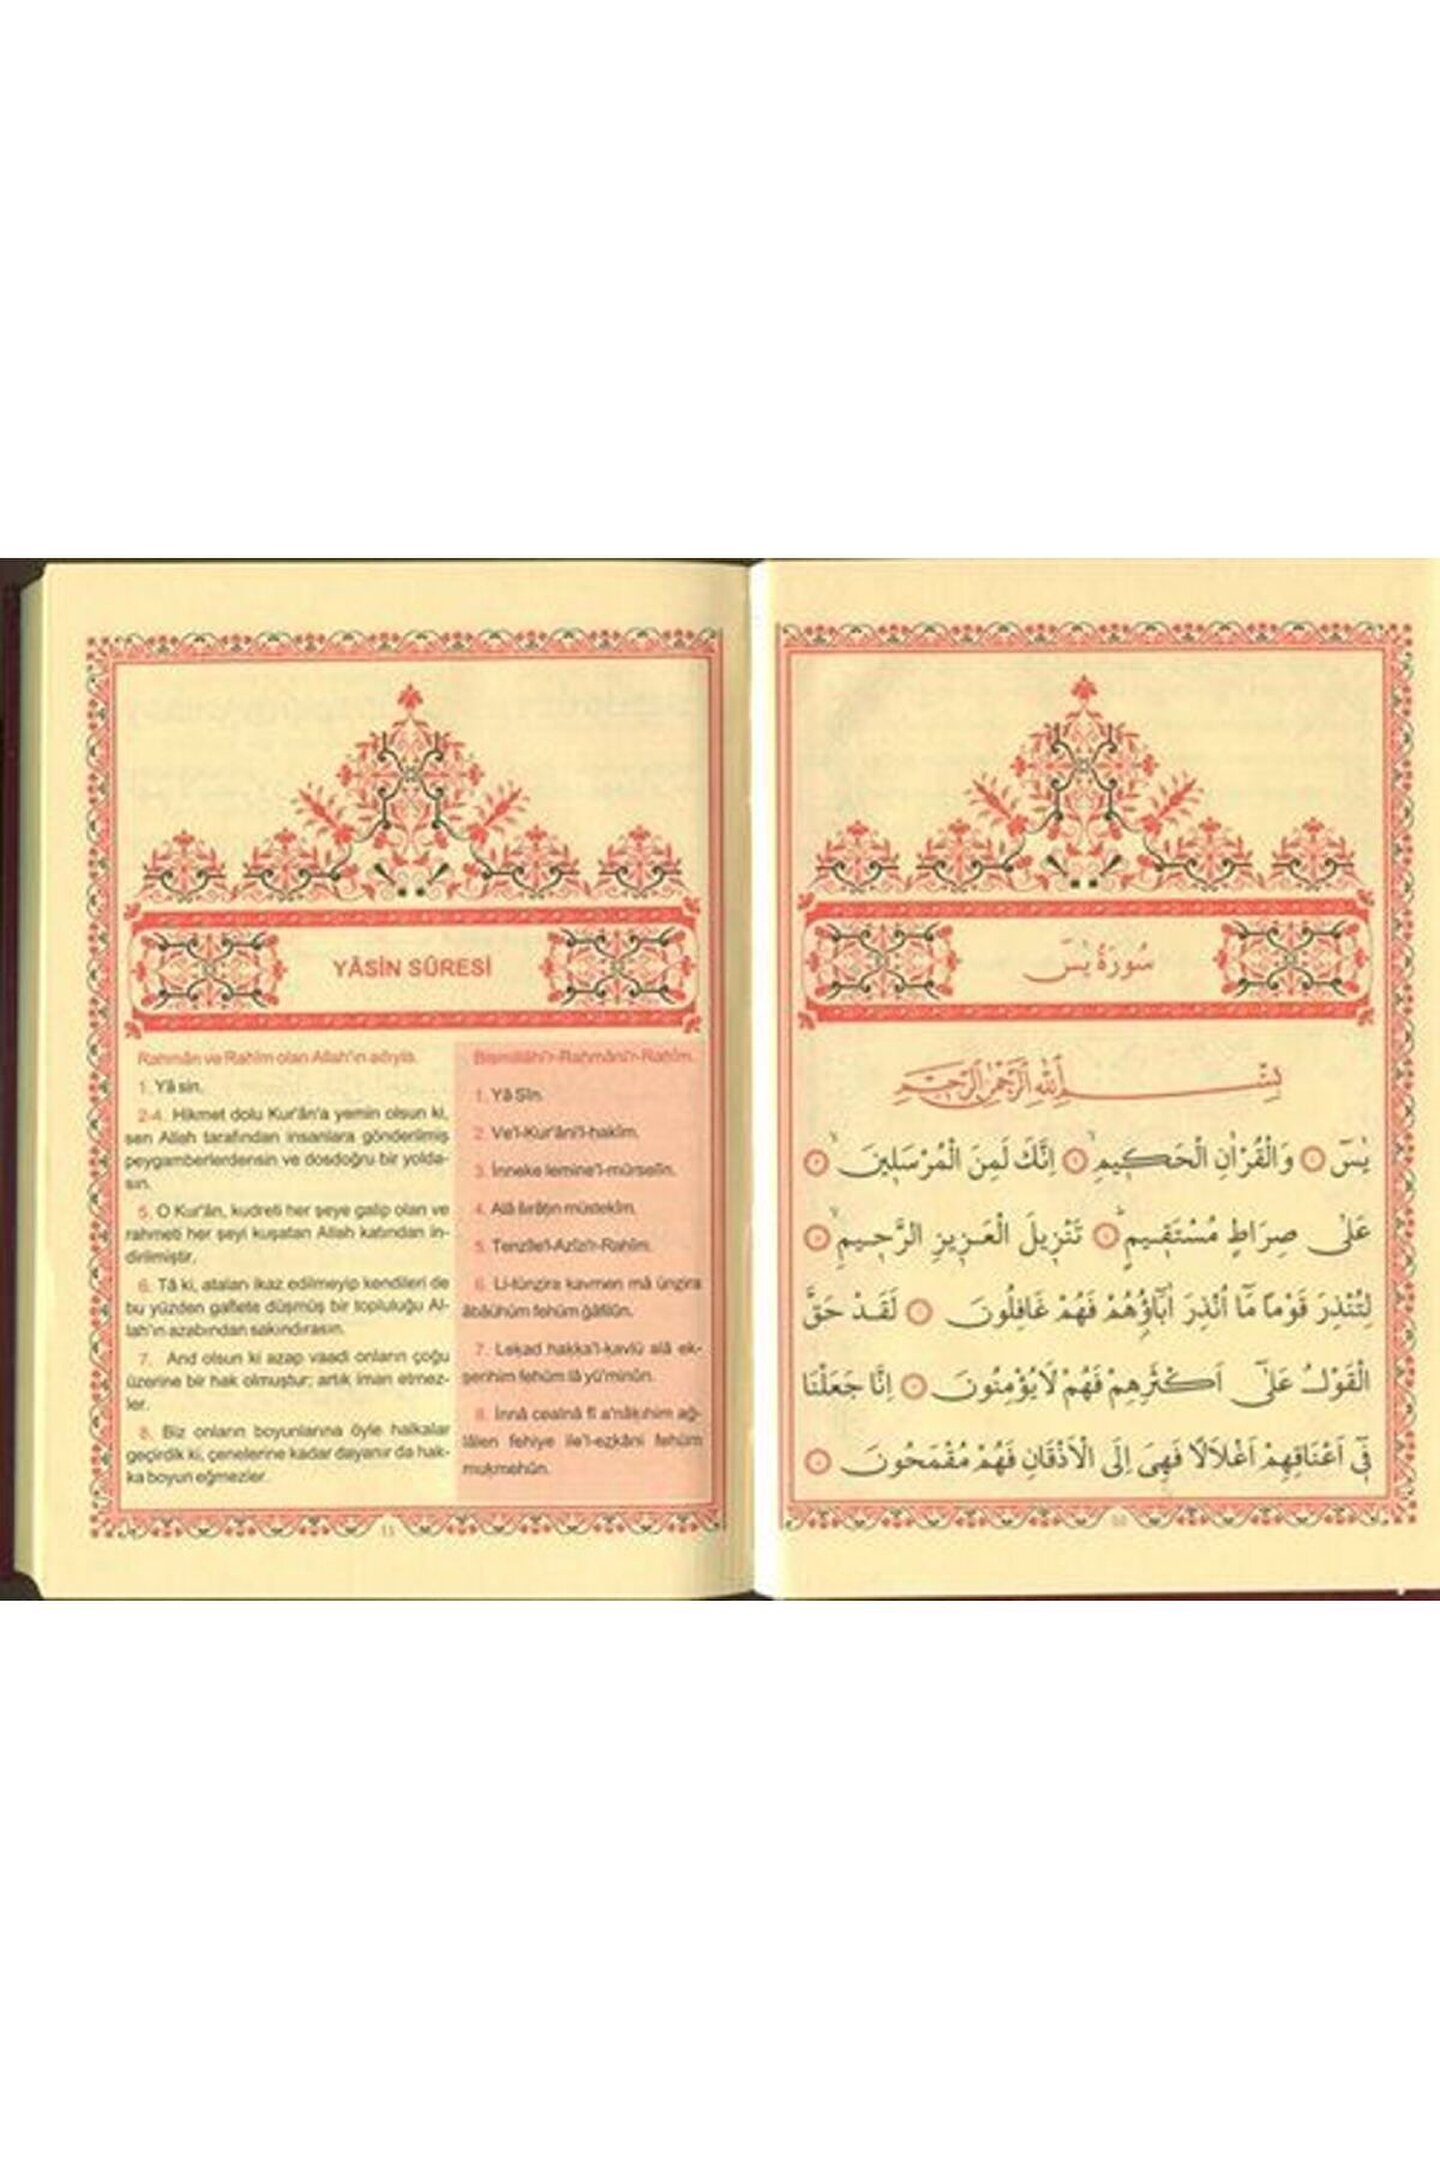 YÂSİN SÛRESİ
Rahmân ve Rahîm olan Allah'ın adıyla.
1. Yâ sin.
2-4. Hikmet dolu Kur'ân'a yemin olsun ki,
sen Allah tarafından insanlara gönderilmiş
peygamberlerdensin ve dosdoğru bir yolda-
sın.
5. O Kur'ân, kudreti her şeye galip olan ve
rahmeti her şeyi kuşatan Allah katından in-
dirilmiştir.
6. Tâ ki, ataları ikaz edilmeyip kendileri de
bu yüzden gaflete düşmüş bir topluluğu Al-
lah'ın azabından sakındırasın.
7. And olsun ki azap vaadi onların çoğu
üzerine bir hak olmuştur; artık iman etmez-
ler.
8. Biz onların boyunlarına öyle halkalar
geçirdik ki, çenelerine kadar dayanır da hak-
ka boyun eğmezler.
Bismillâhi'r-Rahmâni'r-Rahîm.
1. Yâ Sîn.
2. Ve'l-Kur'âni'l-hakîm.
3. İnneke lemine'l-mürselîn.
4. Alâ ṡırâṭın müstekîm.
5. Tenzîle'l-Azîzi'r-Rahîm.
6. Li-tünẕira kavmen mâ ünẕira
âbâühüm fehüm ğâfilûn.
7. Leḳad haḳḳa'l-ḳavlü alâ ek-
serihim fehüm lâ yü'minûn.
8. İnnâ cealnâ fî a'nâḳıhim ağ-
lâlen fehiye ile'l-eẕḳâni fehüm
muḳmehûn.
11
سُورَةُ يٰسٓ
بِسْمِ اللهِ الرَّحْمٰنِ الرَّحِيمِ
يٰسٓ ۝ وَالْقُرْاٰنِ الْحَكِيمِۙ ۝ اِنَّكَ لَمِنَ الْمُرْسَلِينَۙ ۝
عَلٰى صِرَاطٍ مُسْتَقِيمٍۜ ۝ تَنْزِيلَ الْعَزِيزِ الرَّحِيمِۙ ۝
لِتُنْذِرَ قَوْمًا مَٓا اُنْذِرَ اٰبَٓاؤُ۬هُمْ فَهُمْ غَافِلُونَ ۝ لَقَدْ حَقَّ
الْقَوْلُ عَلٰٓى اَكْثَرِهِمْ فَهُمْ لَا يُؤْمِنُونَ ۝ اِنَّا جَعَلْنَا
فِٓي اَعْنَاقِهِمْ اَغْلَالًا فَهِيَ اِلَى الْاَذْقَانِ فَهُمْ مُقْمَحُونَ ۝